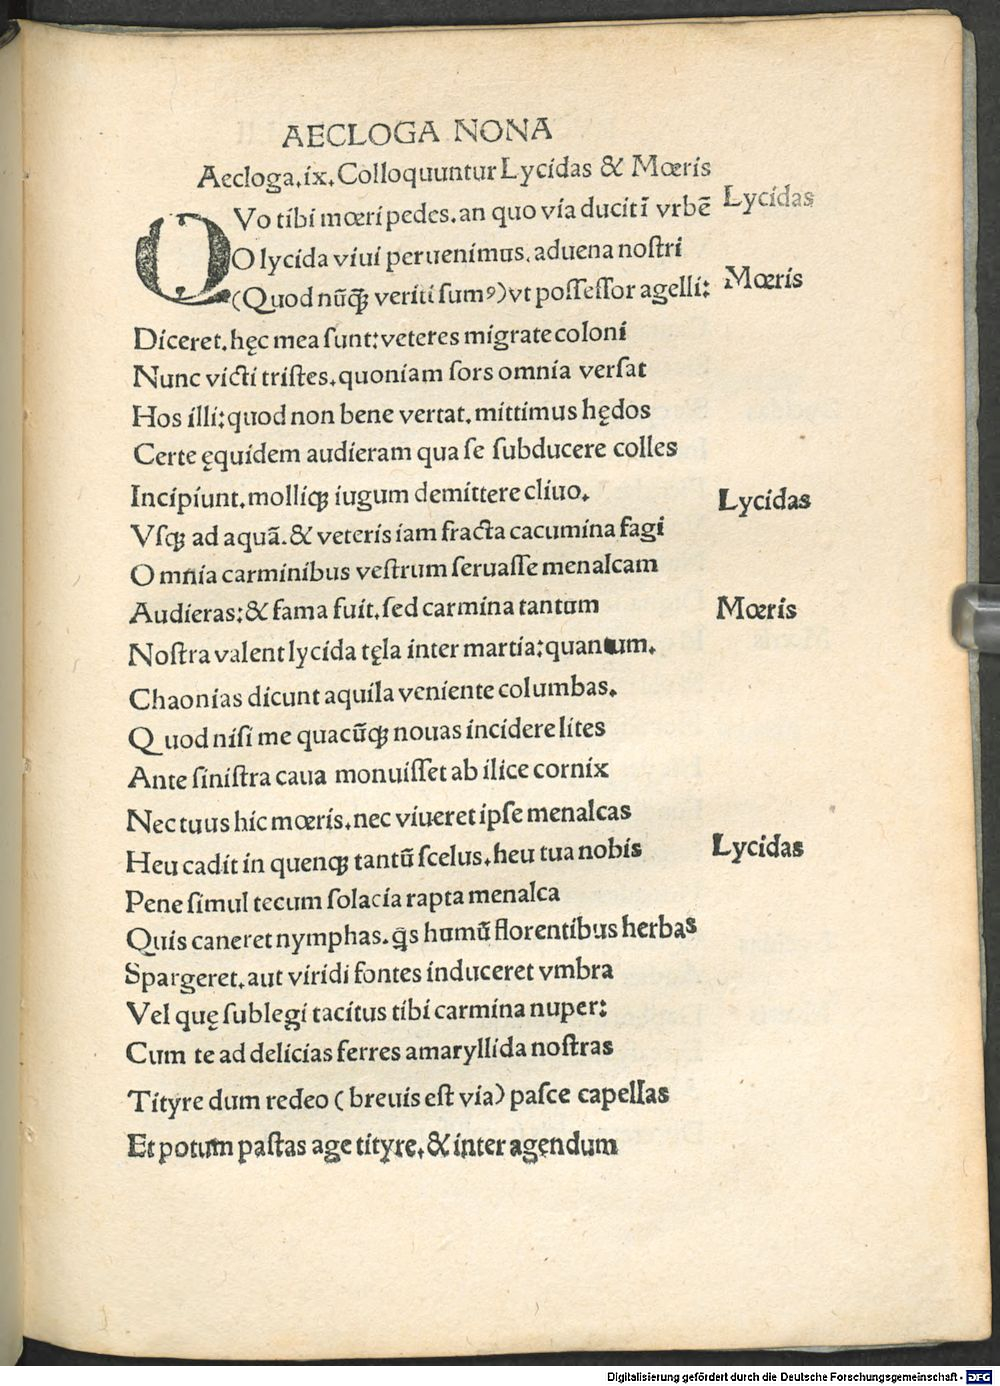 AECLOGA NONA
Aecloga.ix.Colloquuntur Lycidas & Mœris
QVo tibi mœri pedes.an quo via ducit ĩ vrbẽ Lycidas
O lycida viui peruenimus.aduena nostri
(Quod nũꝗ veriti sumꝰ)vt possessor agelli: Mœris
Diceret.hęc mea sunt:veteres migrate coloni
Nunc victi tristes.quoniam sors omnia versat
Hos illi:quod non bene vertat.mittimus hędos
Certe ęquidem audieram qua se subducere colles
Incipiunt.molliqꝫ iugum demittere cliuo. Lycidas
Vsqꝫ ad aquã.& veteris iam fracta cacumina fagi
Omnia carminibus vestrum seruasse menalcam
Audieras:& fama fuit.sed carmina tantum Mœris
Nostra valent lycida tęla inter martia:quantum.
Chaonias dicunt aquila veniente columbas.
Quod nisi me quacũqꝫ nouas incidere lites
Ante sinistra caua monuisset ab ilice cornix
Nec tuus hic mœris.nec viueret ipse menalcas
Heu cadit in quenqꝫ tantũ scelus.heu tua nobis Lycidas
Pene simul tecum solacia rapta menalca
Quis caneret nymphas.ꝗs humũ florentibus herbas
Spargeret.aut viridi fontes induceret vmbra
Vel quę sublegi tacitus tibi carmina nuper:
Cum te ad delicias ferres amaryllida nostras
Tityre dum redeo (breuis est via) pasce capellas
Et potum pastas age tityre.& inter agendum
Digitalisierung gefördert durch die Deutsche Forschungsgemeinschaft - DFG